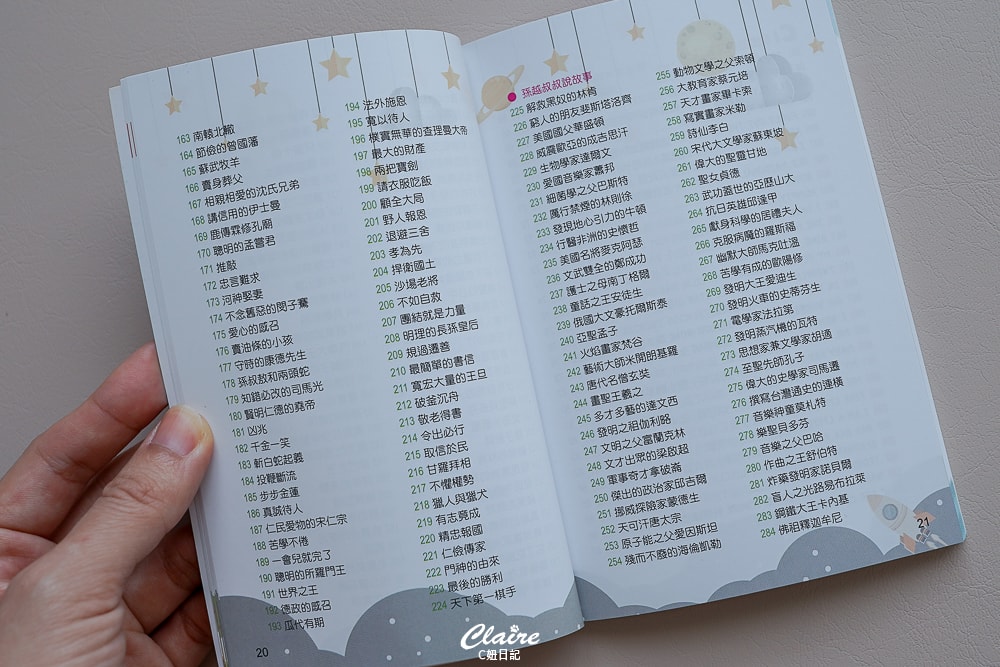 163 南轅北轍
164 節儉的曾國藩
165 蘇武牧羊
166 賣身葬父
167 相親相愛的沈氏兄弟
168 講信用的伊士曼
169 鹿傳霖修孔廟
170 聰明的孟嘗君
171 推敲
172 忠言難求
173 河神娶妻
174 不念舊惡的閔子騫
175 愛心的感召
176 賣油條的小孩
177 守時的康德先生
178 孫叔敖和兩頭蛇
179 知錯必改的司馬光
180 賢明仁德的堯帝
181 凶兆
182 千金一笑
183 斬白蛇起義
184 投鞭斷流
185 步步金蓮
186 真誠待人
187 仁民愛物的宋仁宗
188 苦學不倦
189 一會兒就完了
190 聰明的所羅門王
191 世界之王
192 德政的感召
193 瓜代有期
194 法外施恩
195 寬以待人
196 樸實無華的查理曼大帝
197 最大的財產
198 兩把寶劍
199 請衣服吃飯
200 顧全大局
201 野人報恩
202 退避三舍
203 孝為先
204 捍衛國土
205 沙場老將
206 不如自救
207 團結就是力量
208 明理的長孫皇后
209 規過遷善
210 最簡單的書信
211 寬宏大量的王旦
212 破釜沉舟
213 敬老得書
214 令出必行
215 取信於民
216 甘羅拜相
217 不懼權勢
218 獵人與獵犬
219 有志竟成
220 精忠報國
221 仁儉傳家
222 門神的由來
223 最後的勝利
224 天下第一棋手
20
孫越叔叔說故事
225 解救黑奴的林肯
226 窮人的朋友斐斯塔洛齊
227 美國國父華盛頓
228 威震歐亞的成吉思汗
229 生物學家達爾文
230 愛國音樂家蕭邦
231 細菌學之父巴斯特
232 厲行禁煙的林則徐
233 發現地心引力的牛頓
234 行醫非洲的史懷哲
235 美國名將麥克阿瑟
236 文武雙全的鄭成功
237 護士之母南丁格爾
238 童話之王安徒生
239 俄國大文豪托爾斯泰
240 亞聖孟子
241 火焰畫家梵谷
242 藝術大師米開朗基羅
243 唐代名僧玄奘
244 書聖王羲之
245 多才多藝的達文西
246 發明之祖伽利略
247 文明之父富蘭克林
248 文才出眾的梁啟超
249 軍事奇才拿破崙
250 傑出的政治家邱吉爾
251 挪威探險家蒙德生
252 天可汗唐太宗
253 原子能之父愛因斯坦
254 殘而不廢的海倫凱勒
255 動物文學之父索頓
256 大教育家蔡元培
257 天才畫家畢卡索
258 寫實畫家米勒
259 詩仙李白
260 宋代大文學家蘇東坡
261 偉大的聖靈甘地
262 聖女貞德
263 武功蓋世的亞歷山大
264 抗日英雄邱逢甲
265 獻身科學的居禮夫人
266 克服病魔的羅斯福
267 幽默大師馬克吐溫
268 苦學有成的歐陽修
269 發明大王愛迪生
270 發明火車的史蒂芬生
271 電學家法拉第
272 發明蒸汽機的瓦特
273 思想家兼文學家胡適
274 至聖先師孔子
275 偉大的史學家司馬遷
276 撰寫台灣通史的連橫
277 音樂神童莫札特
278 樂聖貝多芬
279 音樂之父巴哈
280 作曲之王舒伯特
281 炸藥發明家諾貝爾
282 盲人之光路易布拉萊
283 鋼鐵大王卡內基
284 佛祖釋迦牟尼
21
Claire
C妞日記